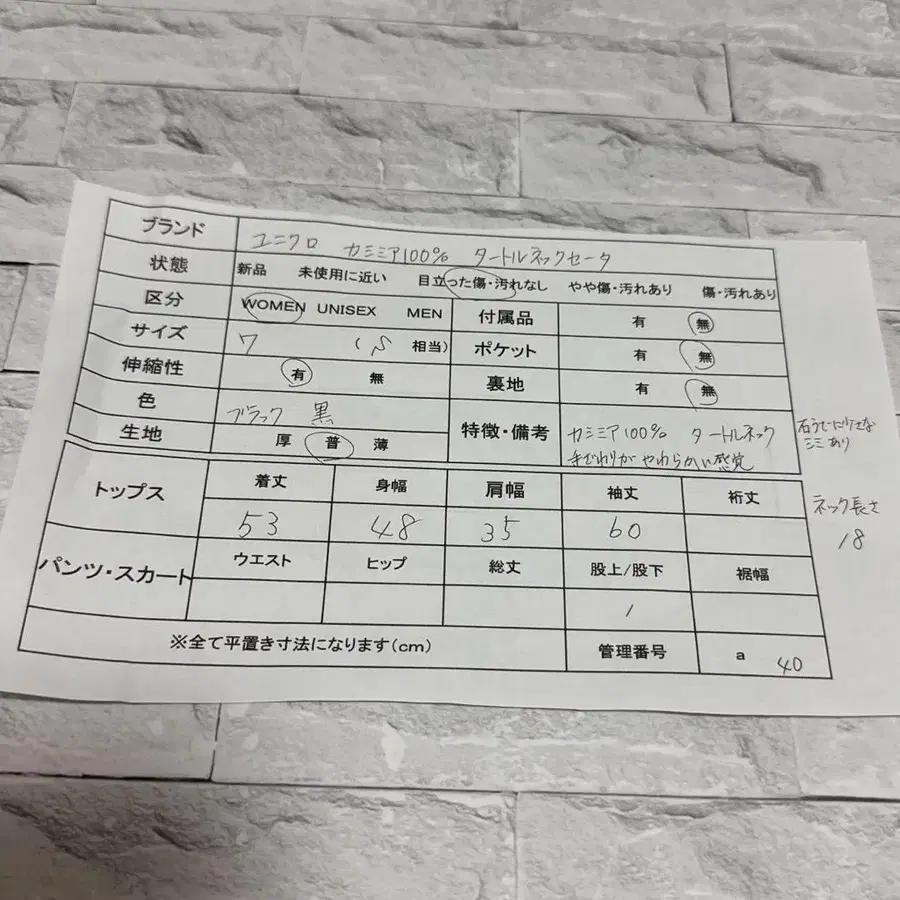 ブランド ユニクロ カミミア100% タートルネックセータ
状態 新品 未使用に近い 目立った傷・汚れなし やや傷・汚れあり 傷・汚れあり
区分 WOMEN UNISEX MEN 付属品 有 無
サイズ ワ (S 相当) ポケット 有 無
伸縮性 有 無 裏地 有 無
色 ブラック 黒
生地 厚 普 薄
特徴・備考 カミミア100% タートルネック
手ざわりが やわらかい感覚
右うでに小さな
シミあり
トップス 着丈 身幅 肩幅 袖丈 裄丈
53 48 35 60
ネック長さ
18
パンツ・スカート ウエスト ヒップ 総丈 股上/股下 裾幅
/
※全て平置き寸法になります(cm) 管理番号 a 40